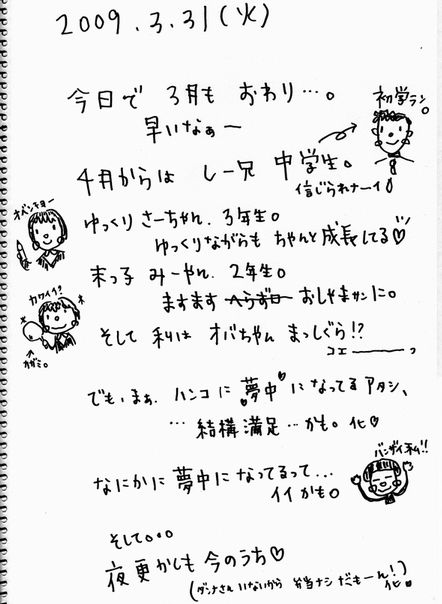 2009.3.31(火)
今日で 3月も おわり…。
早いなぁー
初学ラン。
4月からは しー兄 中学生。
信じられナーイ!
オベンキョー
ゆっくり さーちゃん、3年生。
ゆっくりながらも ちゃんと成長してる♡
末っ子 みーやん、2年生。
カワイイ?
ますます へらず口 おしゃまサンに。
↑カガミ。
そして 私は オバちゃん まっしぐら!?
コエーーーっ
でも、まぁ、ハンコに 夢中 になってるアタシ、
…結構満足…かも。化♡
バンザイ私!!
なにかに夢中になってるって…
イイかも。
そして。。。
夜更かしも 今のうち♡
(ダンナさん いないから 弁当ナシ だもーん!)化